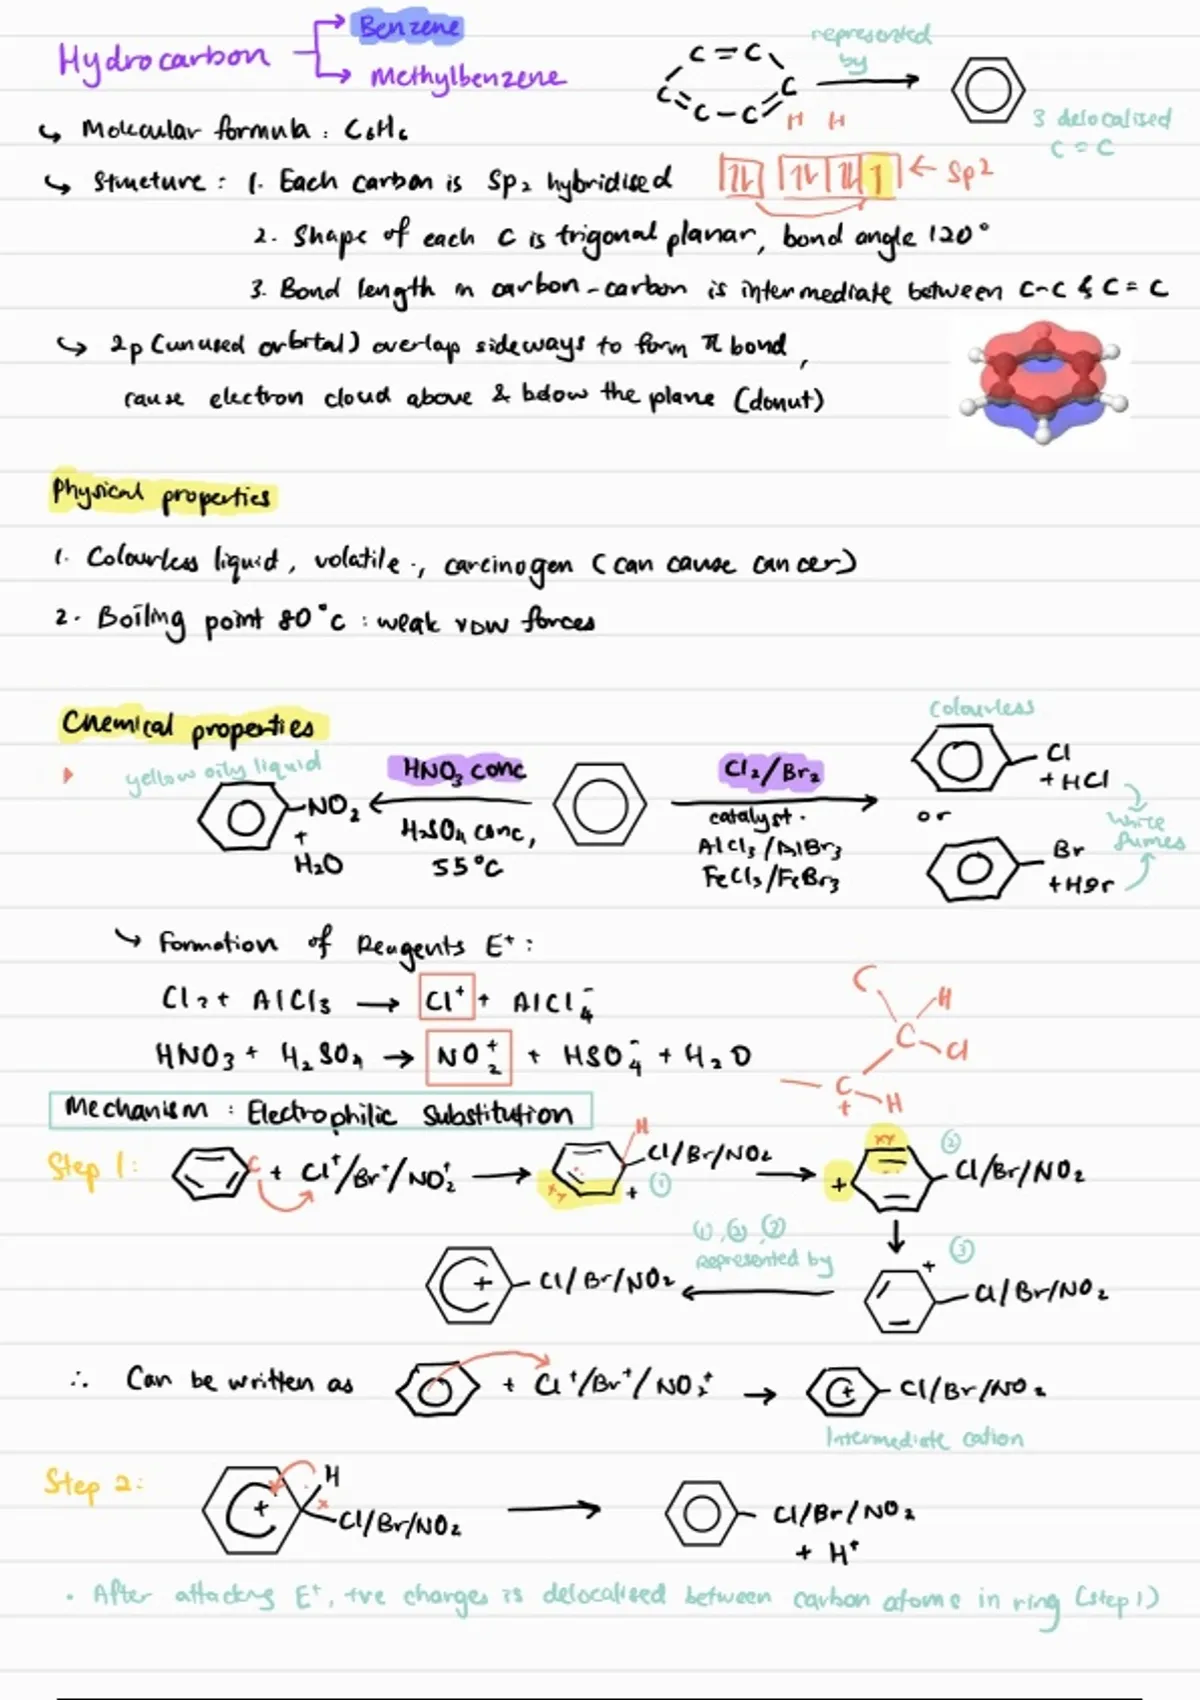 Hydrocarbon
Benzene
Methylbenzene
represented
by
3 delocalised
C = C
↳ Molecular formula : C₆H₆
↳ Structure : 1. Each carbon is Sp₂ hybridised
H H
← Sp²
2. Shape of each C is trigonal planar, bond angle 120°
3. Bond length in carbon-carbon is intermediate between C-C & C = C
↳ 2p (unused orbital) overlap sideways to form π bond,
cause electron cloud above & below the plane (donut)
Physical properties
1. Colourless liquid, volatile., carcinogen (can cause cancer)
2. Boiling point 80°C : weak VDW forces
Chemical properties
yellow oily liquid
NO₂
+
H₂O
HNO₃ conc
H₂SO₄ conc,
55°C
Cl₂/Br₂
catalyst.
AlCl₃/AlBr₃
FeCl₃/FeBr₃
Colourless
Cl
+ HCl
or
Br
+HBr
white
fumes
↳ Formation of Reagents E⁺ :
Cl₂ + AlCl₃ → Cl⁺ + AlCl₄⁻
HNO₃ + H₂SO₄ → NO₂⁺ + HSO₄⁻ + H₂O
C
H
C
Cl
C
+
H
Mechanism : Electrophilic Substitution
Step 1: C + Cl⁺/Br⁺/NO₂⁺ → H Cl/Br/NO₂ + ① → + ② Cl/Br/NO₂
①, ②, ③
represented by
+ ③
Cl/Br/NO₂
+ Cl/Br/NO₂
∴ Can be written as + Cl⁺/Br⁺/NO₂⁺ → + Cl/Br/NO₂
Intermediate cation
Step 2:
+ H
Cl/Br/NO₂
Cl/Br/NO₂
+ H⁺
• After attacking E⁺, +ve charges is delocalised between carbon atoms in ring (step 1)